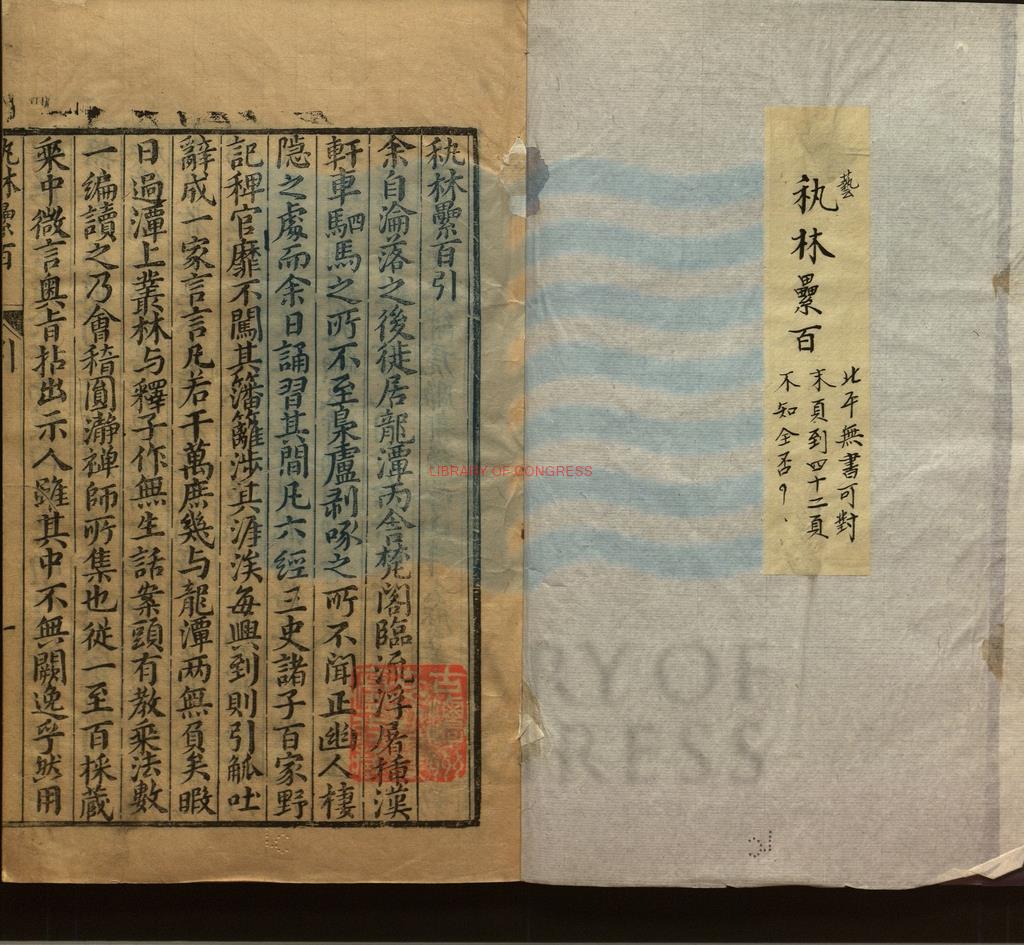 藝
秇林纍百
北平無書可對
末頁到四十二頁
不知全否？
秇林纍百引
余自淪落之後徙居龍潭丙舍梵閣臨流浮屠插漢
軒車駟馬之所不至梟盧剥啄之所不聞正幽人棲
隱之處而余日誦習其間凡六經三史諸子百家野
記稗官靡不闖其籓籬涉其涯涘每興到則引觚吐
辭成一家言言凡若干萬庶幾与龍潭两無負矣暇
日過潭上叢林与釋子作無生話案頭有教乘法數
一編讀之乃會稽圓瀞禅師所集也從一至百採蔵
乘中微言奥旨拈出示人雖其中不無闕逸乎然用
秇林纍百
引
一
LIBRARY OF CONGRESS